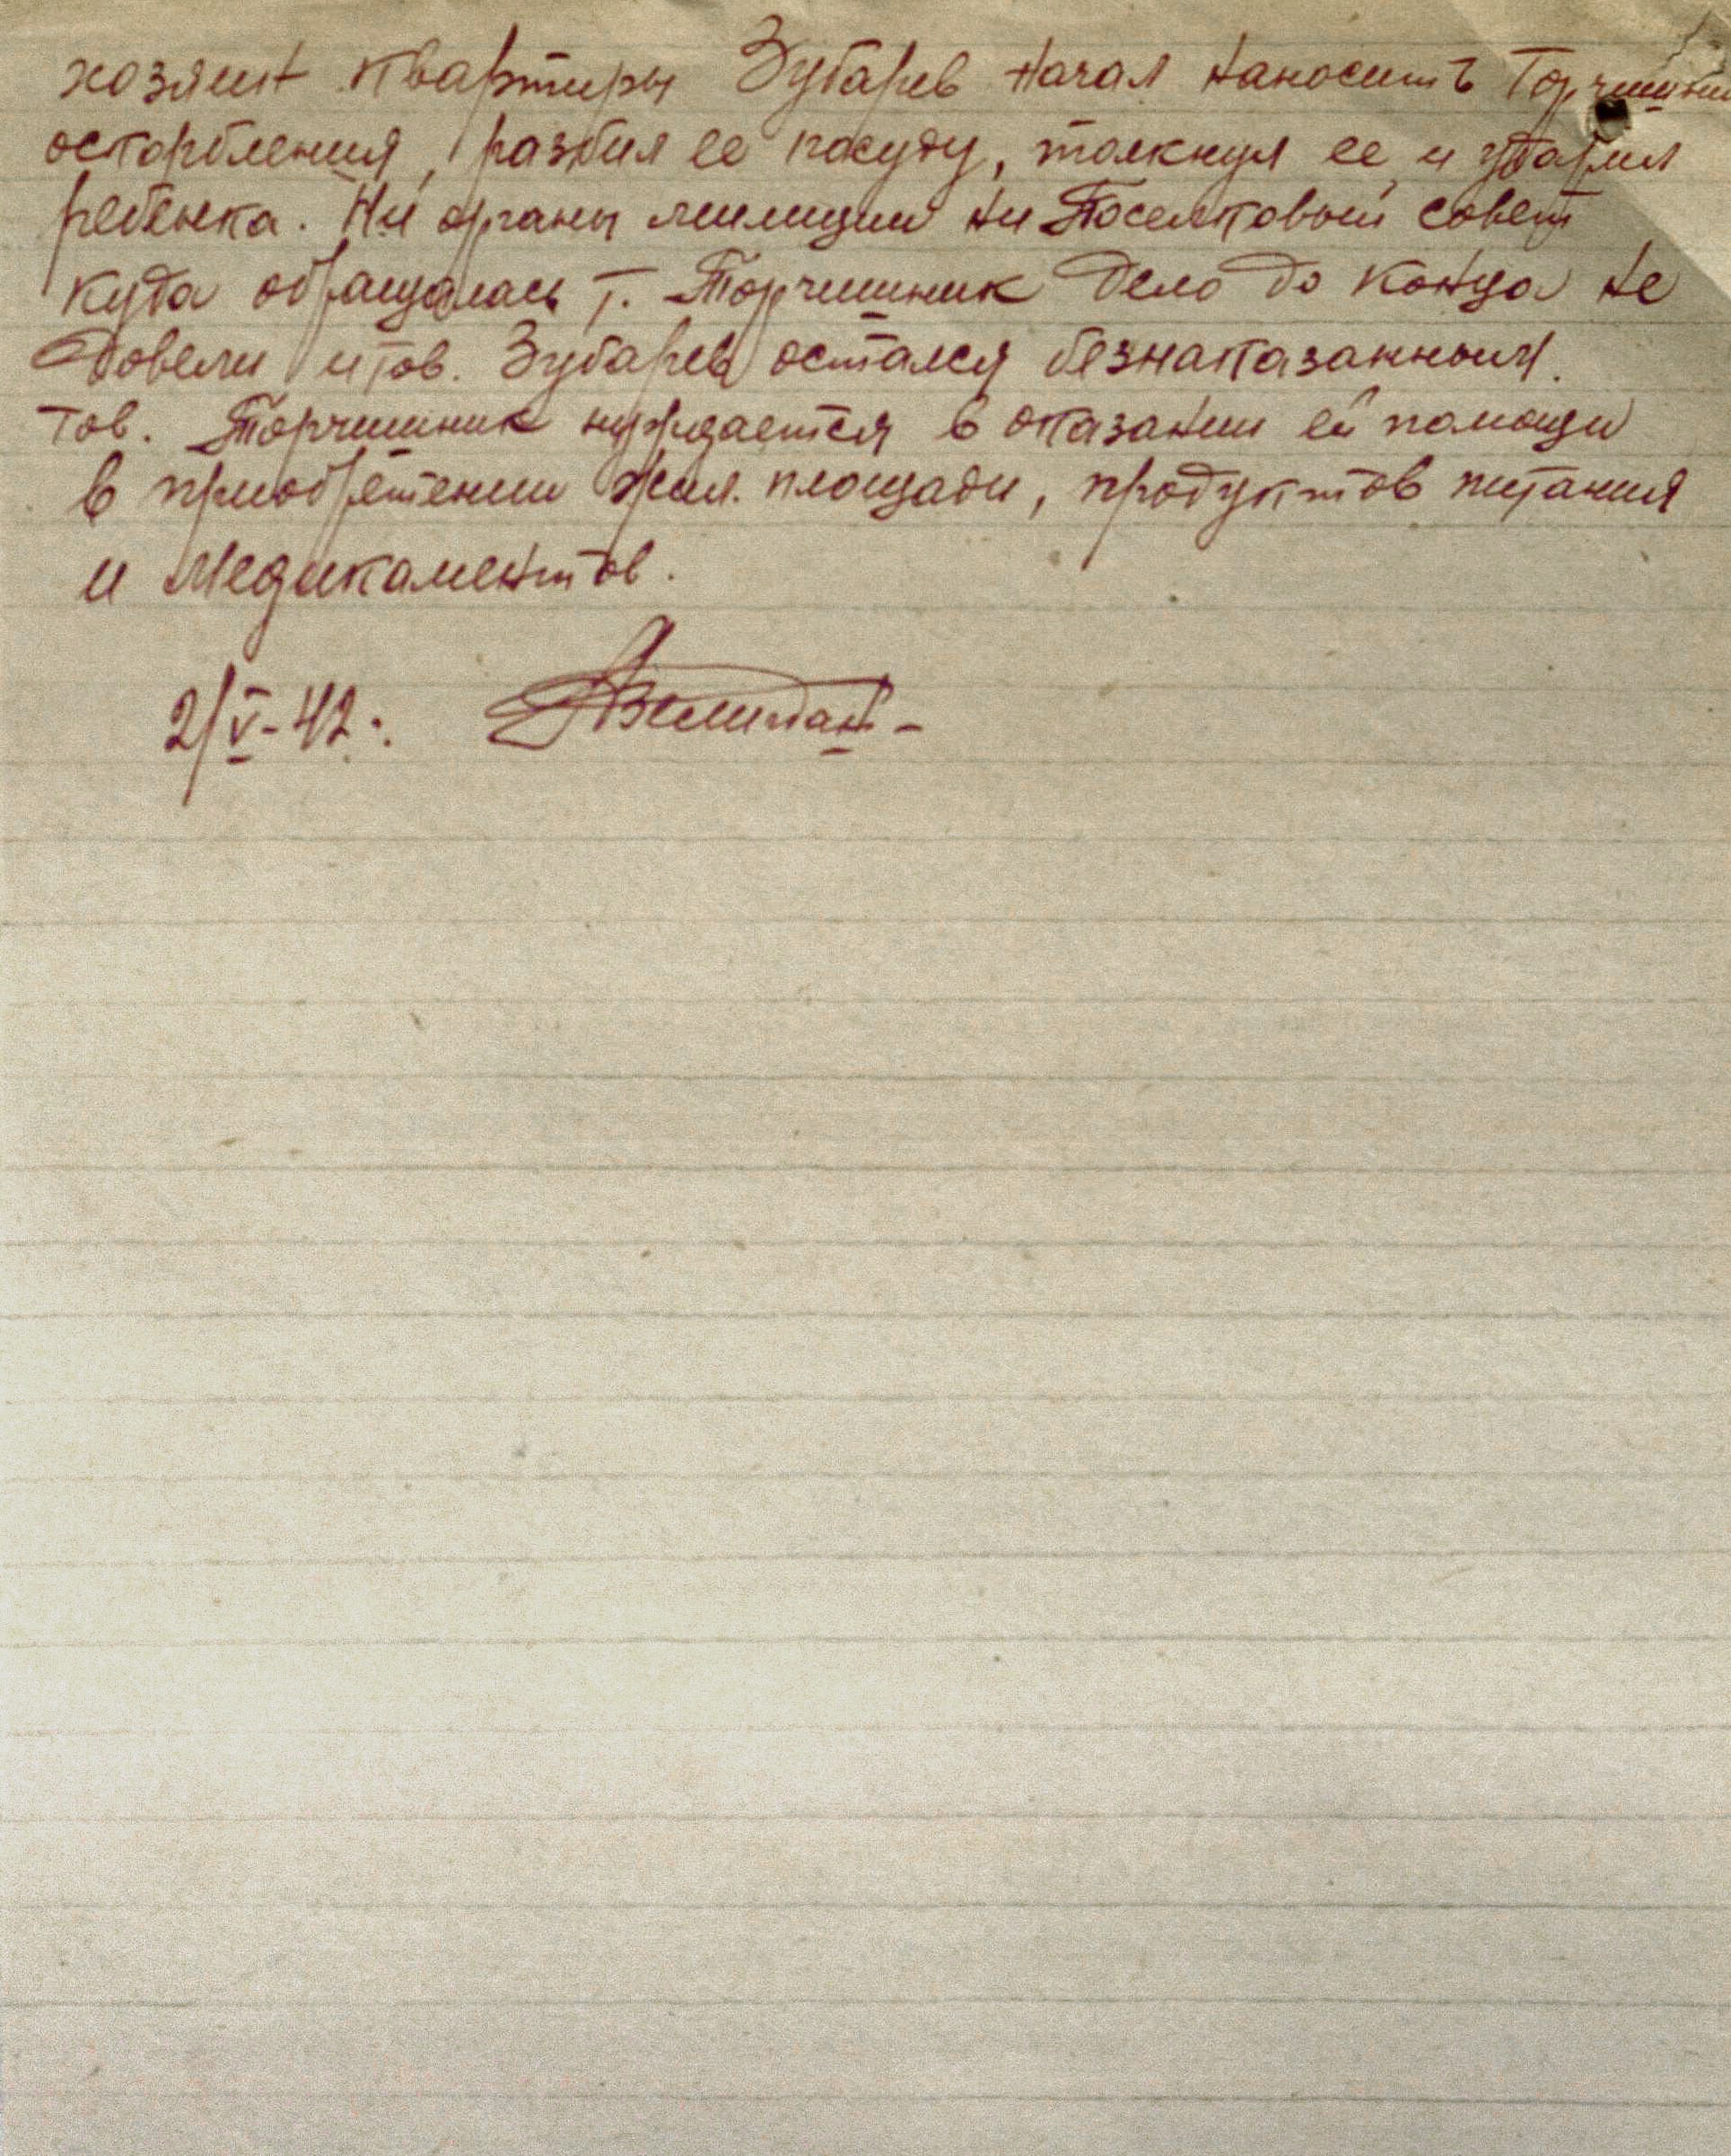 хозяин квартиры Зубарев начал наносить Торчинник
оскорбления, разбил ее посуду, толкнул ее и ударил
ребенка. Ни органы милиции ни Поселковый совет
куда обращалась т. Торчинник дело до конца не
довели и тов. Зубарев остался безнаказанным.
тов. Торчинник нуждается в оказании ей помощи
в приобретении жил. площади, продуктов питания
и медикаментов.
2/V-42.